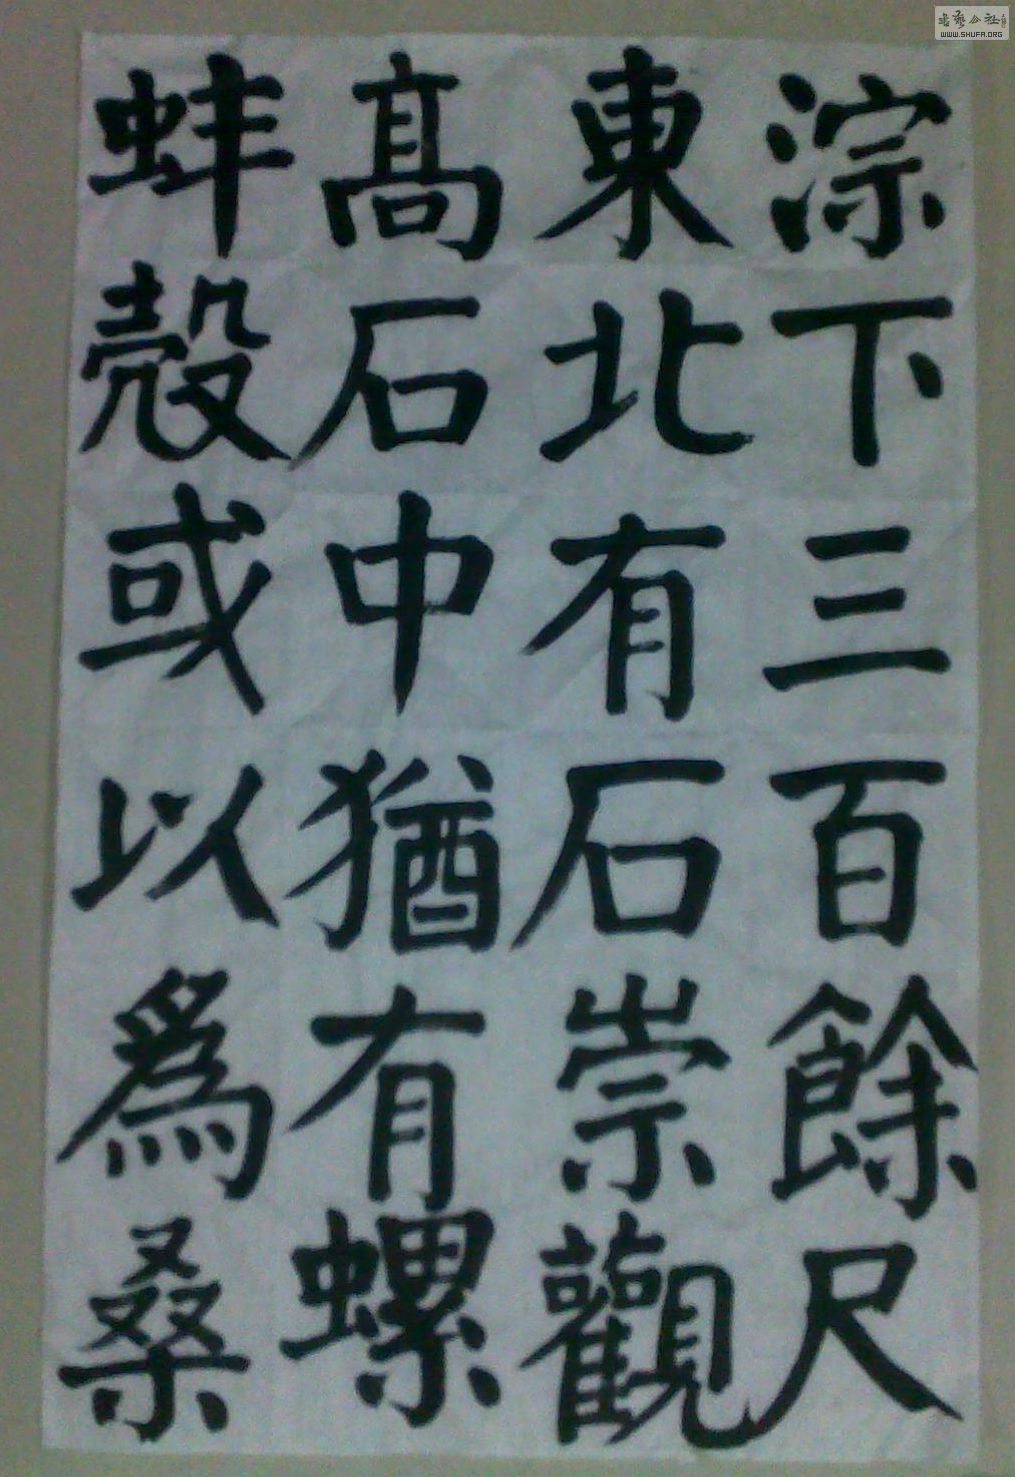 淙下三百餘尺
東北有石崇觀
高石中猶有螺
蚌殼或以為桑
WWW.SHUFA.ORG